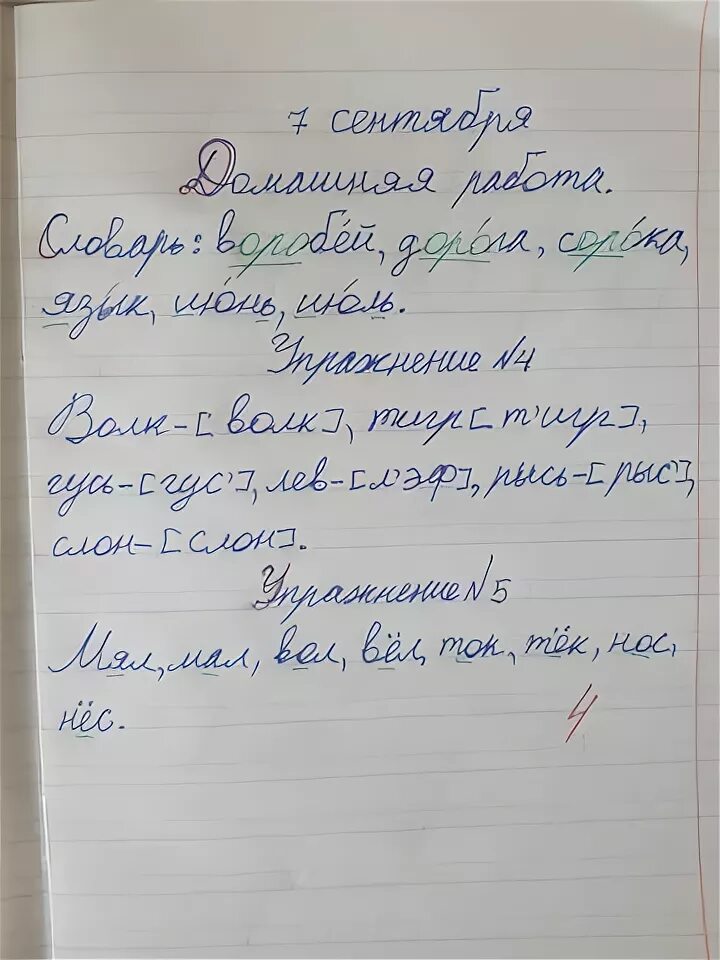 7 сентября
Домашняя работа.
Словарь: воробе́й, доро́га, соро́ка,
язы́к, ию́нь, ию́ль.
Упражнение №4
Волк-[волк], тигр[т'игр],
гусь-[гус'], лев-[л'эф], рысь-[рыс'],
слон-[слон].
Упражнение №5
Мял, мал, вол, вёл, ток, тёк, нос,
нёс.
4